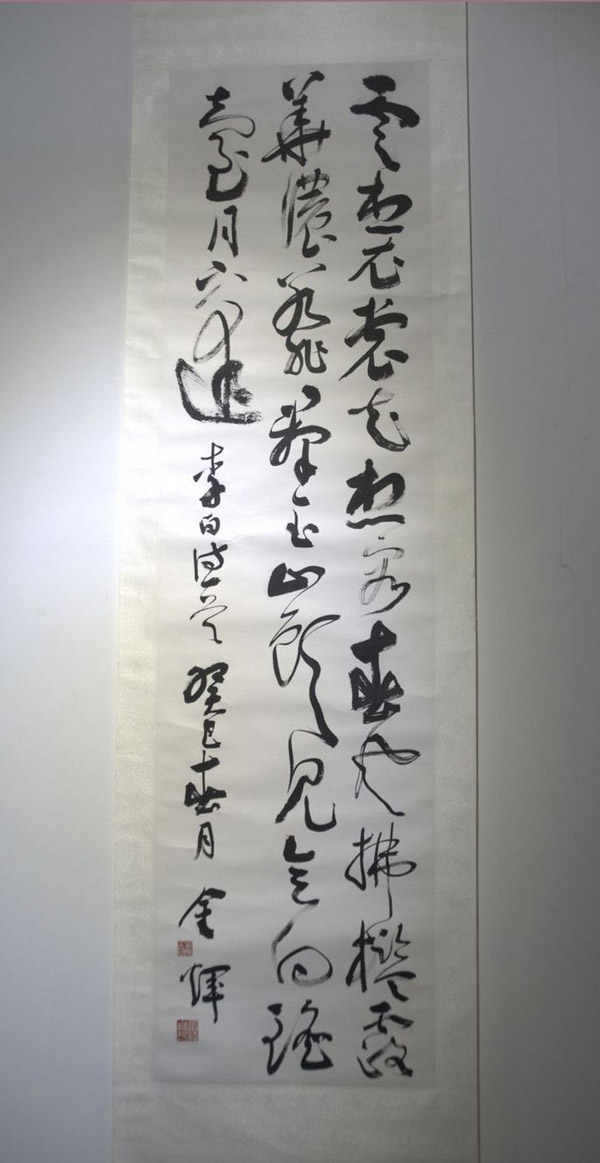 雲想衣裳花想容春風拂檻露
華濃若非羣玉山頭見會向瑤
臺月下逢 李白詩一首 癸巳春月 金輝